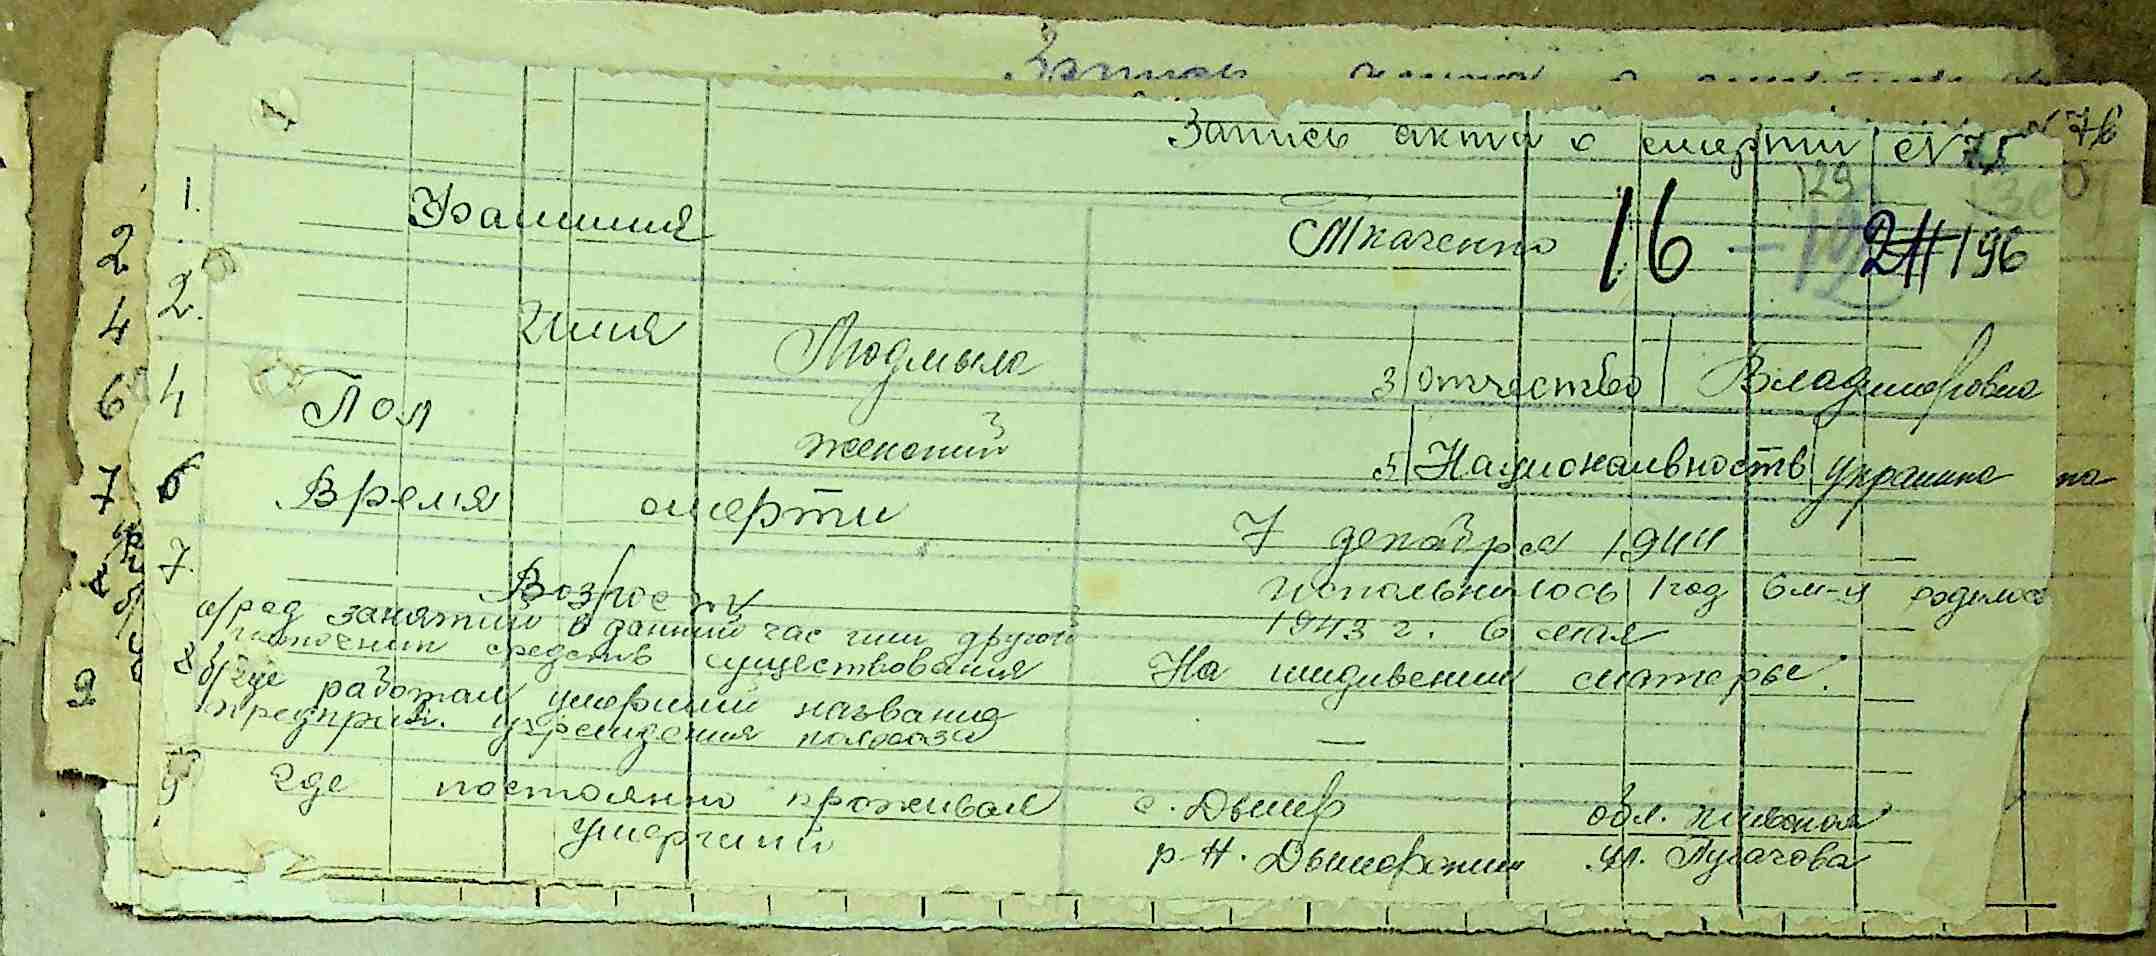 Запись акта о смерти №75
76
129
1. Фамилия Ткаченко 16 196
2. Имя Людмыла 3 отчество Владимеровна
4 Пол женский 5 Национальность украинка
6 Время смерти 7 декабря 1944
7. Возрост исполнилось 1 год 6 м-ц родилась
1943 г. 6 мая
8 а/ род занятий в данний час или другой
источник средств существования На иждивении матери.
б/ где работал умерший название
предприят. учреждения колхоза —
9 Где постоянно проживал с. Дымер обл. Киевская
умерший р-н. Дымерский ул. Пугачова
2
4
6
7
8
9